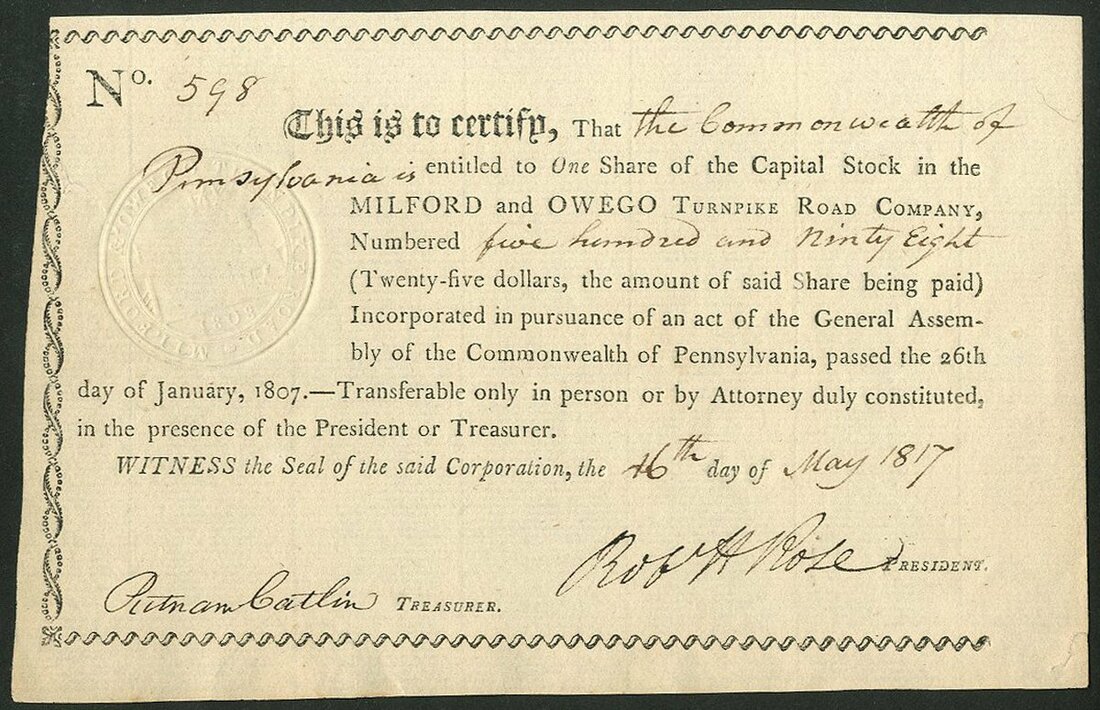 No. 598
This is to certify, That the Commonwealth of
Pennsylvania is entitled to One Share of the Capital Stock in the
MILFORD and OWEGO TURNPIKE ROAD COMPANY,
Numbered five hundred and Ninty Eight
(Twenty-five dollars, the amount of said Share being paid)
Incorporated in pursuance of an act of the General Assem-
bly of the Commonwealth of Pennsylvania, passed the 26th
day of January, 1807.—Transferable only in person or by Attorney duly constituted,
in the presence of the President or Treasurer.
WITNESS the Seal of the said Corporation, the 16th day of May 1817
Rob H Rose PRESIDENT.
Putnam Catlin TREASURER.